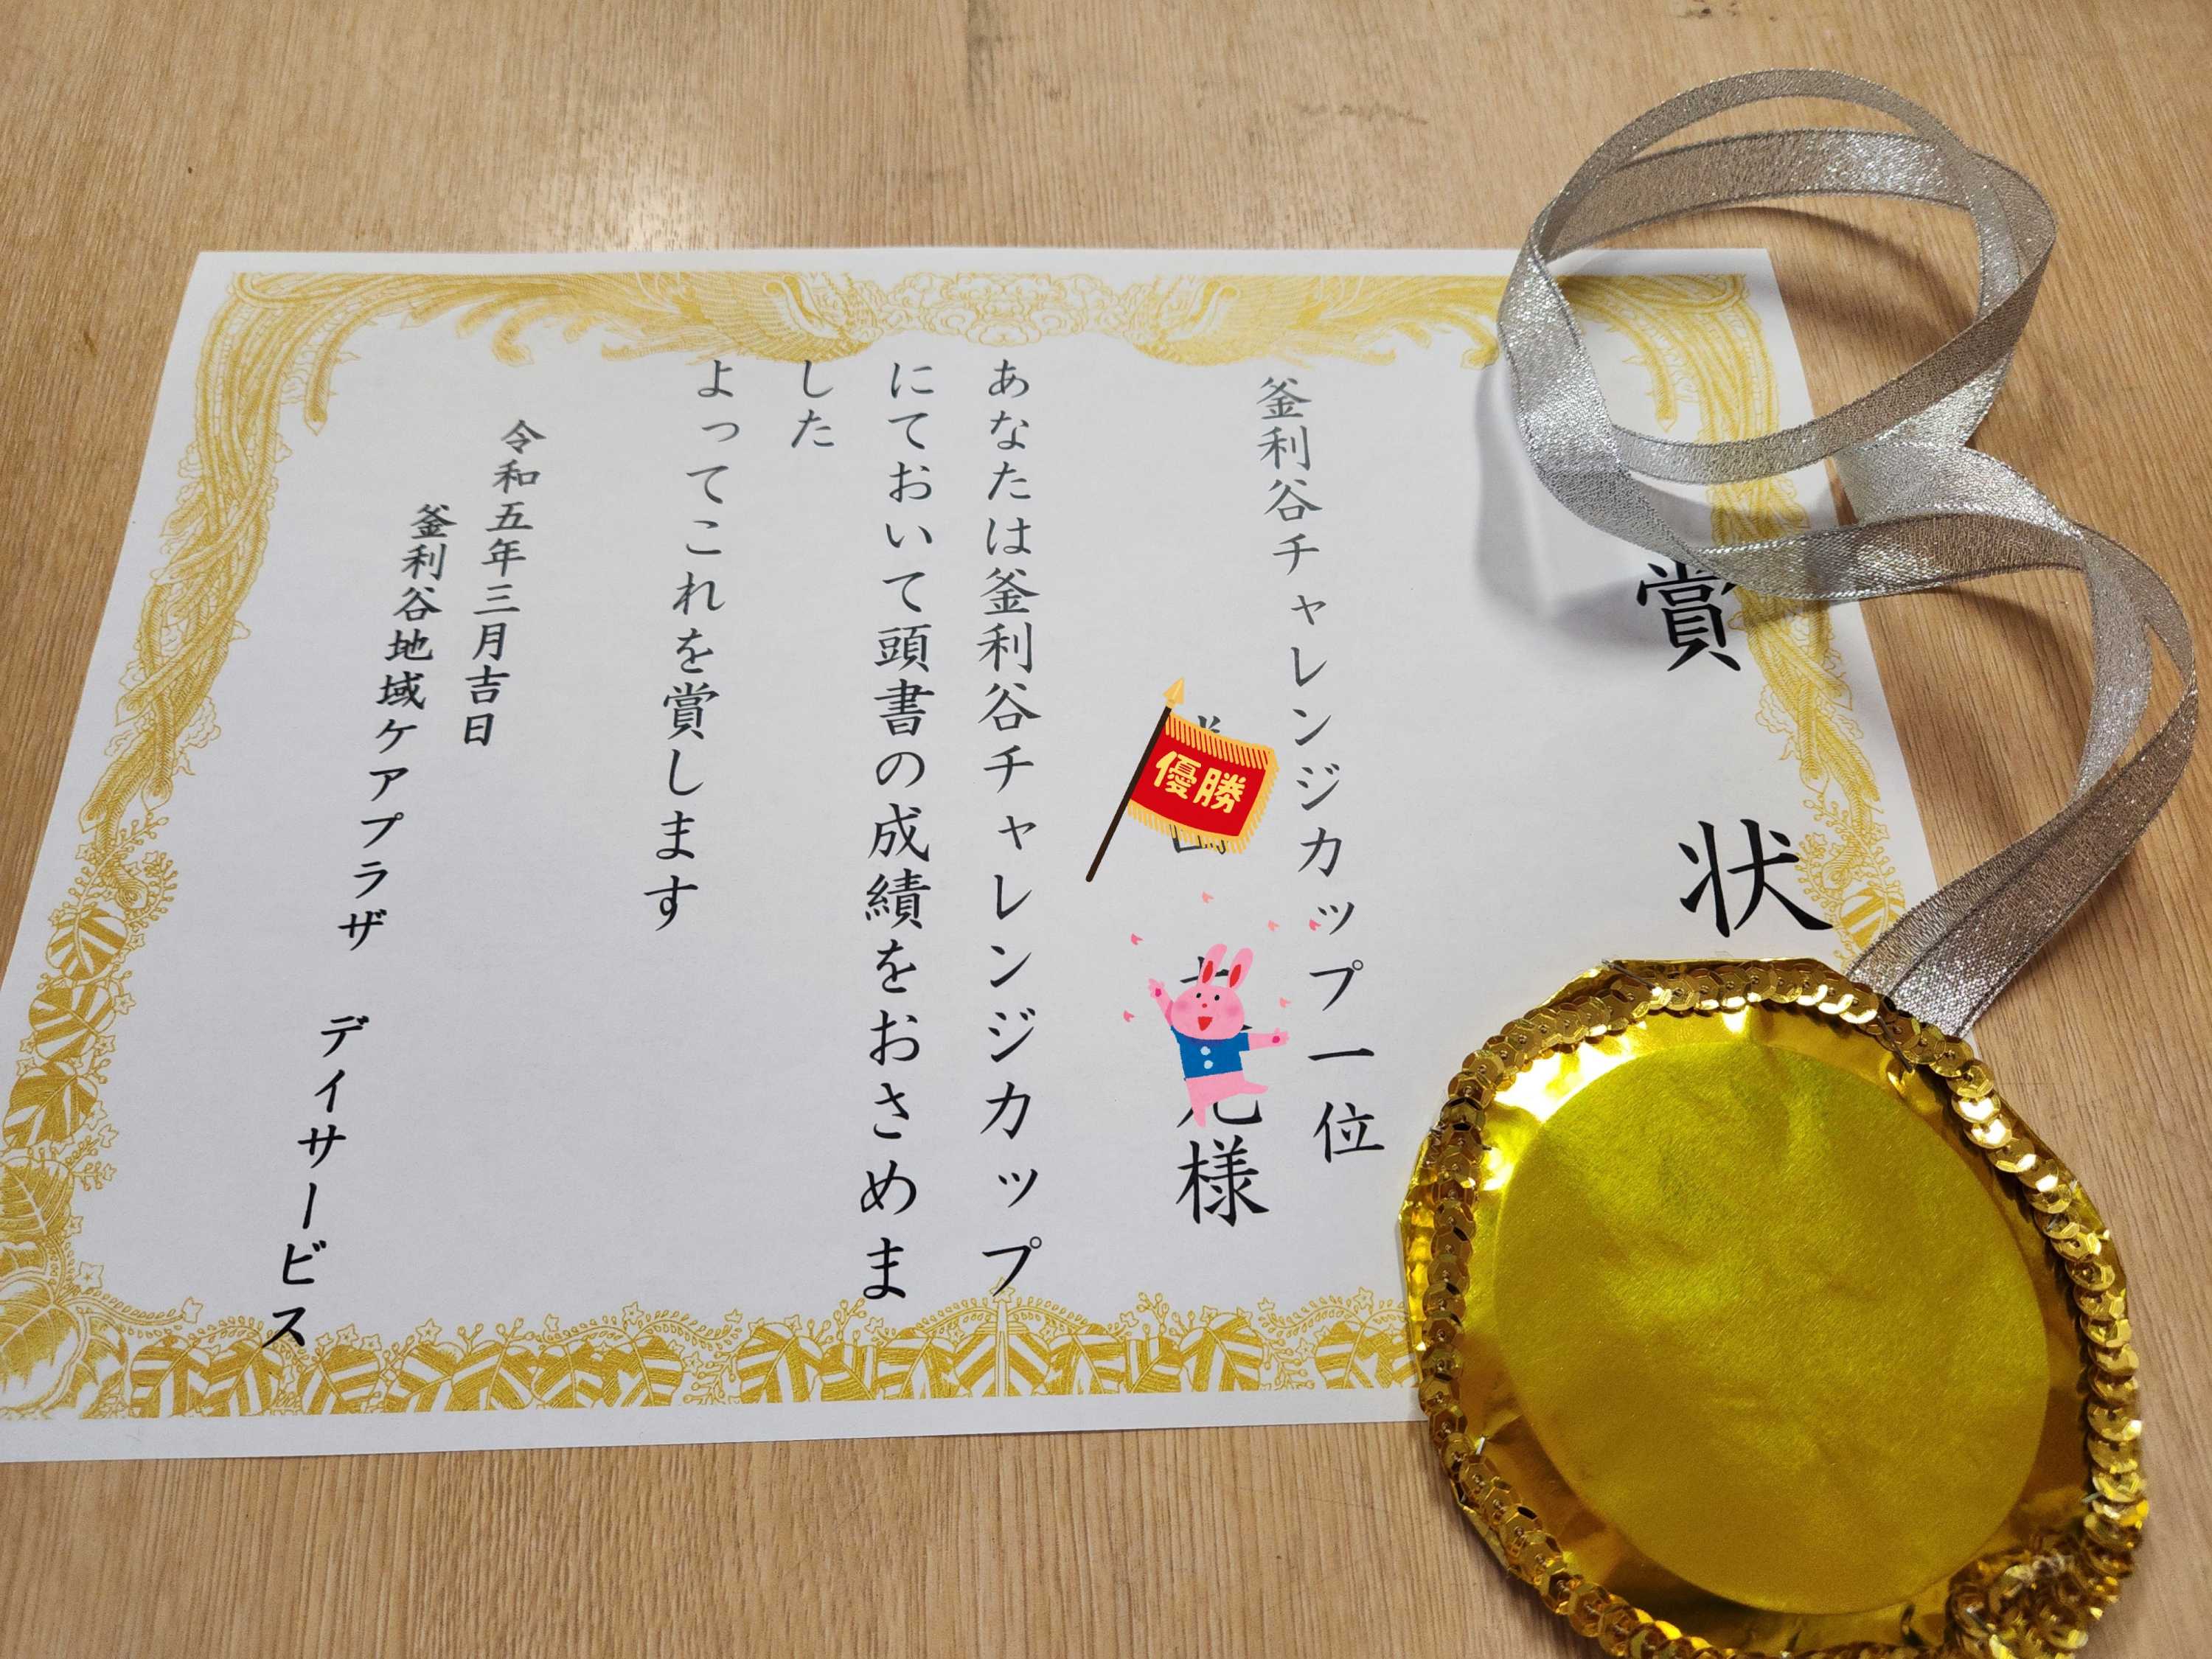 賞状
釜利谷チャレンジカップ一位
優勝
様
あなたは釜利谷チャレンジカップ
にておいて頭書の成績をおさめま
した
よってこれを賞します
令和五年三月吉日
釜利谷地域ケアプラザ デイサービス